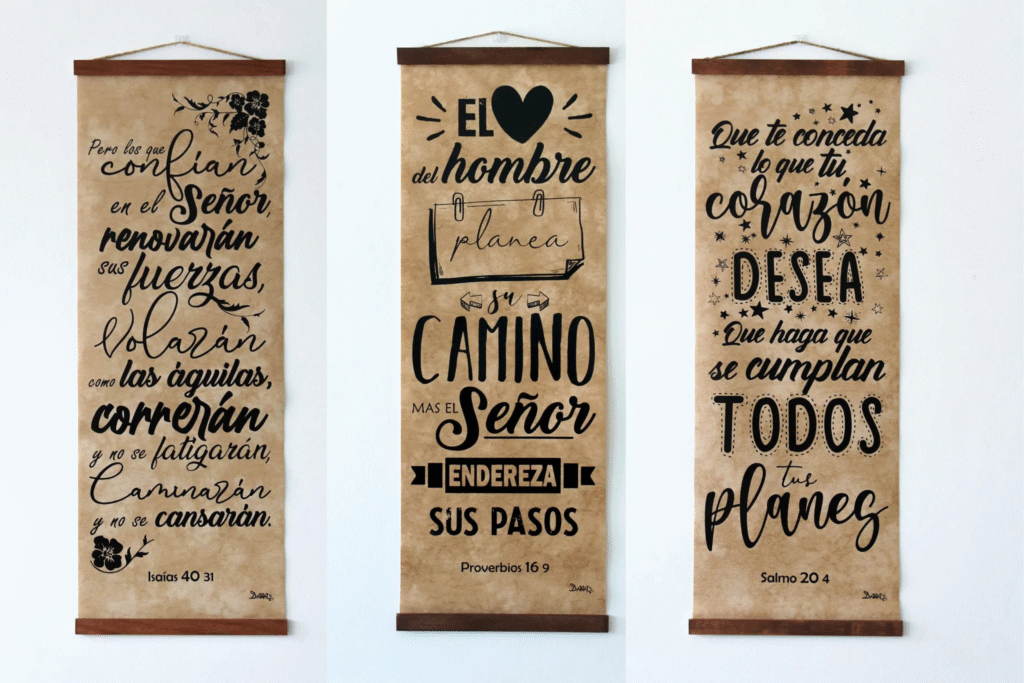 Pero los que
confían
en el Señor,
renovarán
sus fuerzas,
Volarán
como las águilas,
correrán
y no se fatigarán,
Caminarán
y no se cansarán.
Isaías 40 31
EL
del hombre
planea
su
CAMINO
MAS EL Señor
ENDEREZA
SUS PASOS
Proverbios 16 9
Que te conceda
lo que tú
corazón
DESEA
Que haga que
se cumplan
TODOS
tus
planes
Salmo 20 4